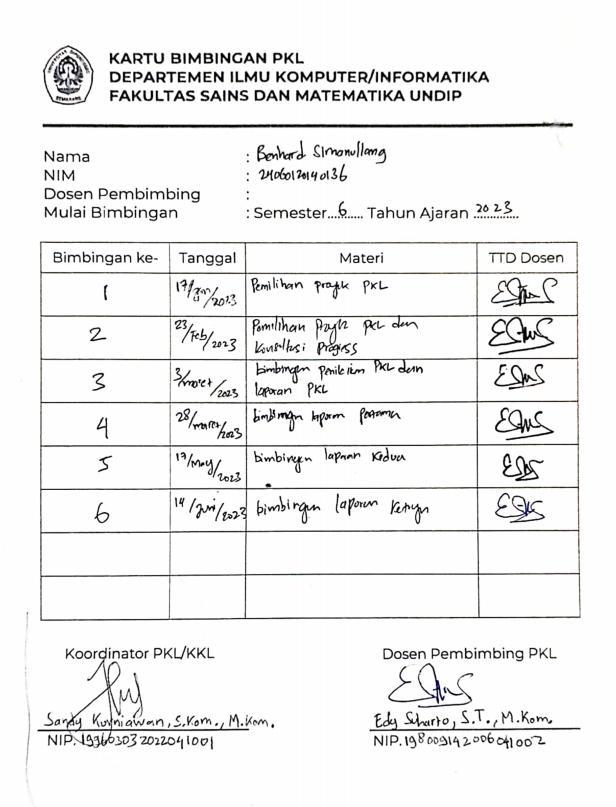 KARTU BIMBINGAN PKL
DEPARTEMEN ILMU KOMPUTER/INFORMATIKA
FAKULTAS SAINS DAN MATEMATIKA UNDIP
Nama : Benhard Simanullang
NIM : 24060120140136
Dosen Pembimbing :
Mulai Bimbingan : Semester...6..... Tahun Ajaran 2023
Bimbingan ke- Tanggal Materi TTD Dosen
1 17/Jan/2023 Pemilihan projek PKL
2 23/Feb/2023 Pemilihan Projek PKL dan
Konsultasi Progress
3 3/maret/2023 bimbingan PKL dan
laporan PKL
4 28/maret/2023 bimbingan laporan pertama
5 17/May/2023 bimbingan laporan kedua
6 14/Juni/2023 bimbingan laporan ketiga
Koordinator PKL/KKL
Sandy Kurniawan, S.Kom., M.Kom.
NIP. 199603032022041001
Dosen Pembimbing PKL
Edy Suharto, S.T., M.Kom.
NIP. 198009142006041002